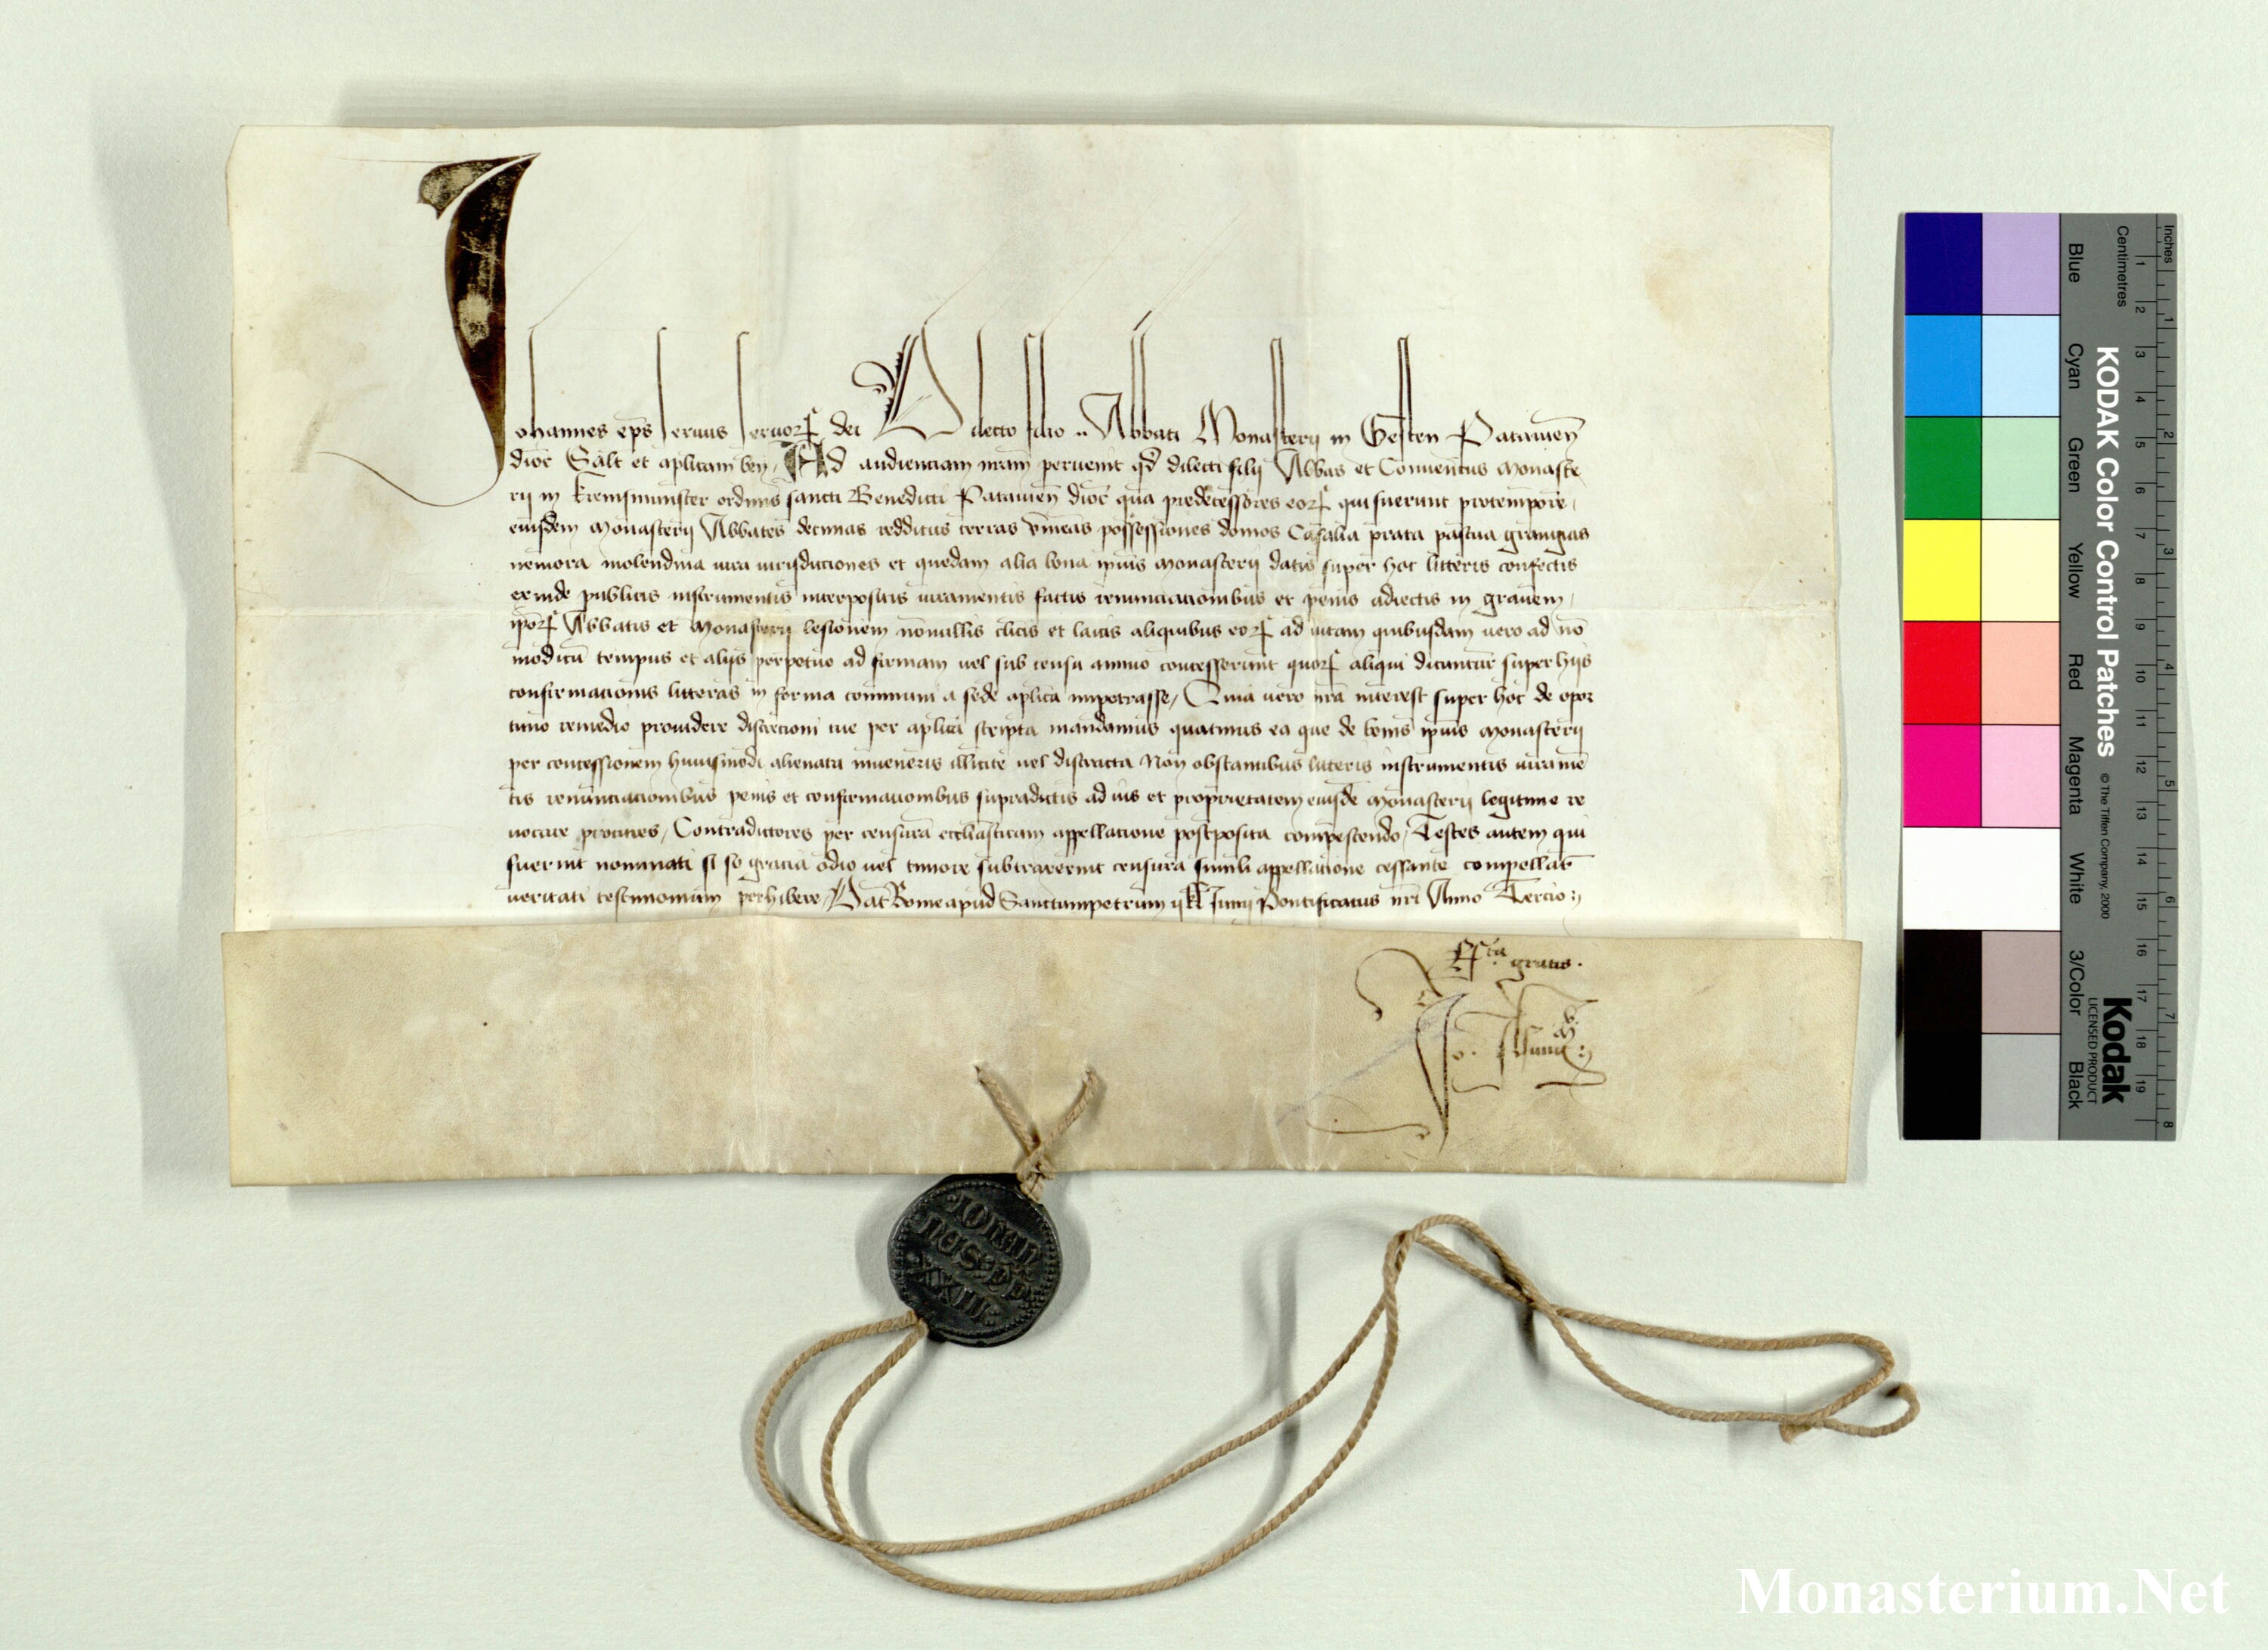 Johannes ep̄s seruus seruorꝝ dei Dilecto filio .. Abbati Monasterij in Gersten Patauien̄
dioc̄ Salt̄ et apl̓icam ben̄. Ad audienciam nr̄am peruenit qd̓ dilecti filij Abbas et Conuentus Monaste
rij in Kremsmunster ordinis sancti Benedicti Patauien̄ dioc̄ q̄ua predecessores eorꝝ qui fuerunt protempore,
eiusdem Monasterij Abbates decimas redditus terras vineas possessiones domos Casalia prata pascua grangias
nemora molendina iura iurisdictiones et quedam alia bona ip̄ius Monasterij datis super hoc litteris confectis
exinde publicis instrumentis interpositis iuramentis factis renunciationibus et penis adiectis in grauem,
ip̄orꝝ Abbatis et Monasterij lesionem nōnullis cl̓icis et laicis aliquibus eorꝝ ad uitam quibusdam uero ad nō
modicū tempus et alijs perpetuo ad firmam uel sub censu annuo concesserunt quorꝝ aliqui dicuntur super hijs
confirmationis litteras in forma communi a sede apl̓ica impetrasse, Quia uero nr̄a interest super hoc de opor
tuno remedio prouidere discretioni tue per apl̓ica scripta mandamus quatinus ea que de bonis ip̄ius Monasterij
per concessionem huiusmodi alienata inueneris illicite uel distracta Non obstantibus litteris instrumentis iuramē
tis renunciationibus penis et confirmationibus supradictis ad ius et proprietatem eiusdē Monasterij legitime re
uocare procures, Contradictores per censurā eccl̓iasticam appellatione postposita compescendo, Testes autem qui
fuerint nominati si se gratia odio uel timore subtraxerint censura simili appellatione cessante compellas
ueritati testimonium perhibere, Dat̄ Rome apud Sanctumpetrum ij kl̓ Junij Pontificatus nr̄i Anno Tercio
Rta gratis.
IOHAN
NES·PP·
XXIII·
Inches
Centimetres
1 2 3 4 5 6 7 8 9 10 11 12 13 14 15 16 17 18 19
1 2 3 4 5 6 7 8
KODAK Color Control Patches © The Tiffen Company, 2000
Kodak
LICENSED PRODUCT
Blue Cyan Green Yellow Red Magenta White 3/Color Black
Monasterium.Net